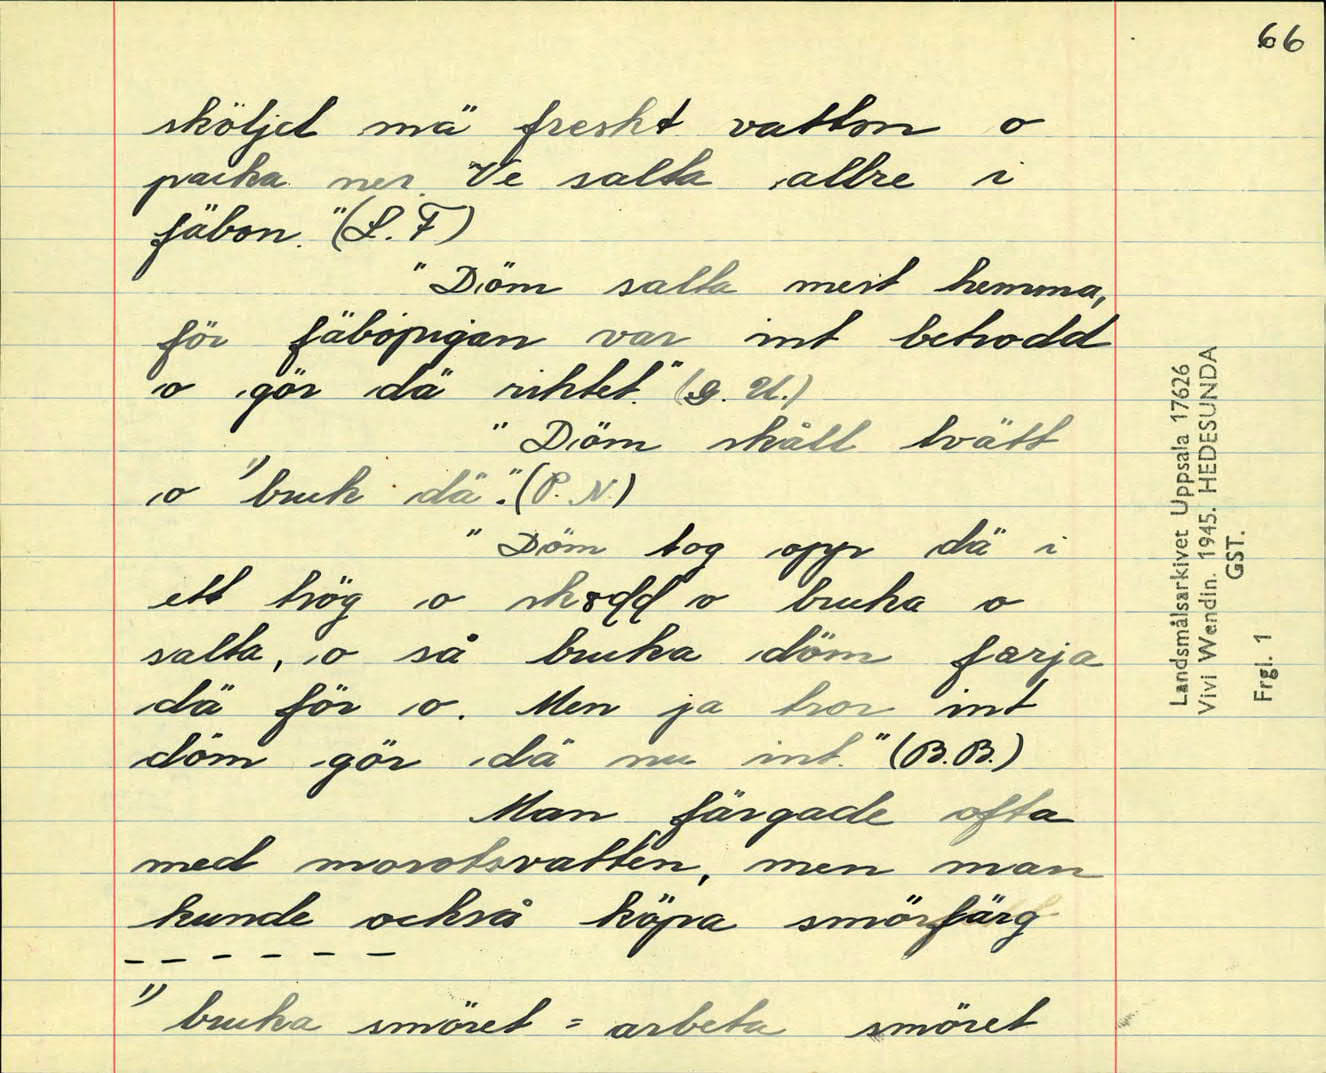 66
sköljd mä freskt vatton o
packa ner. Ve salta allre i
fäbon." (L. F)
"Döm salta mest hemma,
för fäbopigan var int betrodd
o gör dä riktet." (G. U.)
"Döm skåll tvätt
o ¹⁾bruk dä". (P. N.)
"Döm tog opp dä i
ett trög o o bruka o
salta, o så bruka döm færja
dä för o. Men ja tror int
döm gör dä nu int." (B.B.)
Man färgade ofta
med morotsvatten, men man
kunde också köpa smörfärg
- - - - - -
¹⁾ bruka smöret = arbeta smöret
Landsmålsarkivet Uppsala 17626
Vivi Wendin. 1945. HEDESUNDA
GST.
Frgl. 1